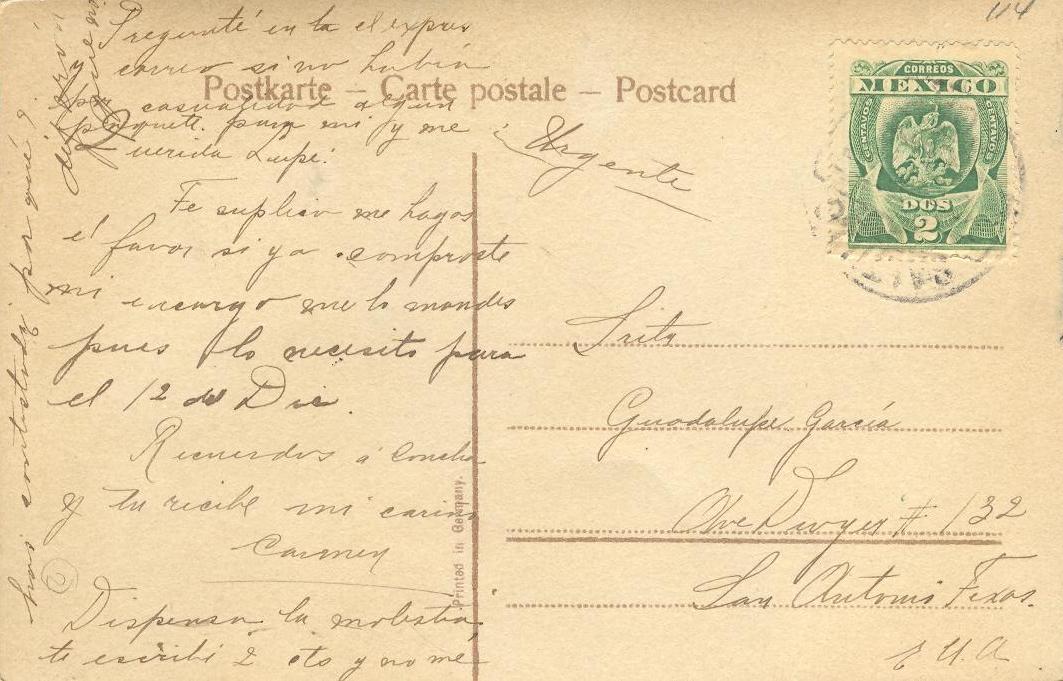 114
Pregunté en la el expres
y correo si no había
por casualidad algun
paquete para mi y me
dijeron que no
Postkarte – Carte postale – Postcard
CORREOS
MEXICO
CENTAVOS
CENTAVOS
DOS
2
Urgente
Querida Lupe:
Te suplico me hagas
el favor si ya compraste
mi encargo me lo mandes
pues lo necesito para
el 12 de Dic.
Recuerdos á Concha
y tu recibe mi cariño
Carmen
Dispensa la molestia,
te escribí 2 cts y no me
has contestado por qué?
2
Printed in Germany.
Srita
Guadalupe García
Ave Dwyer # 132
San Antonio Texas.
E. U. A